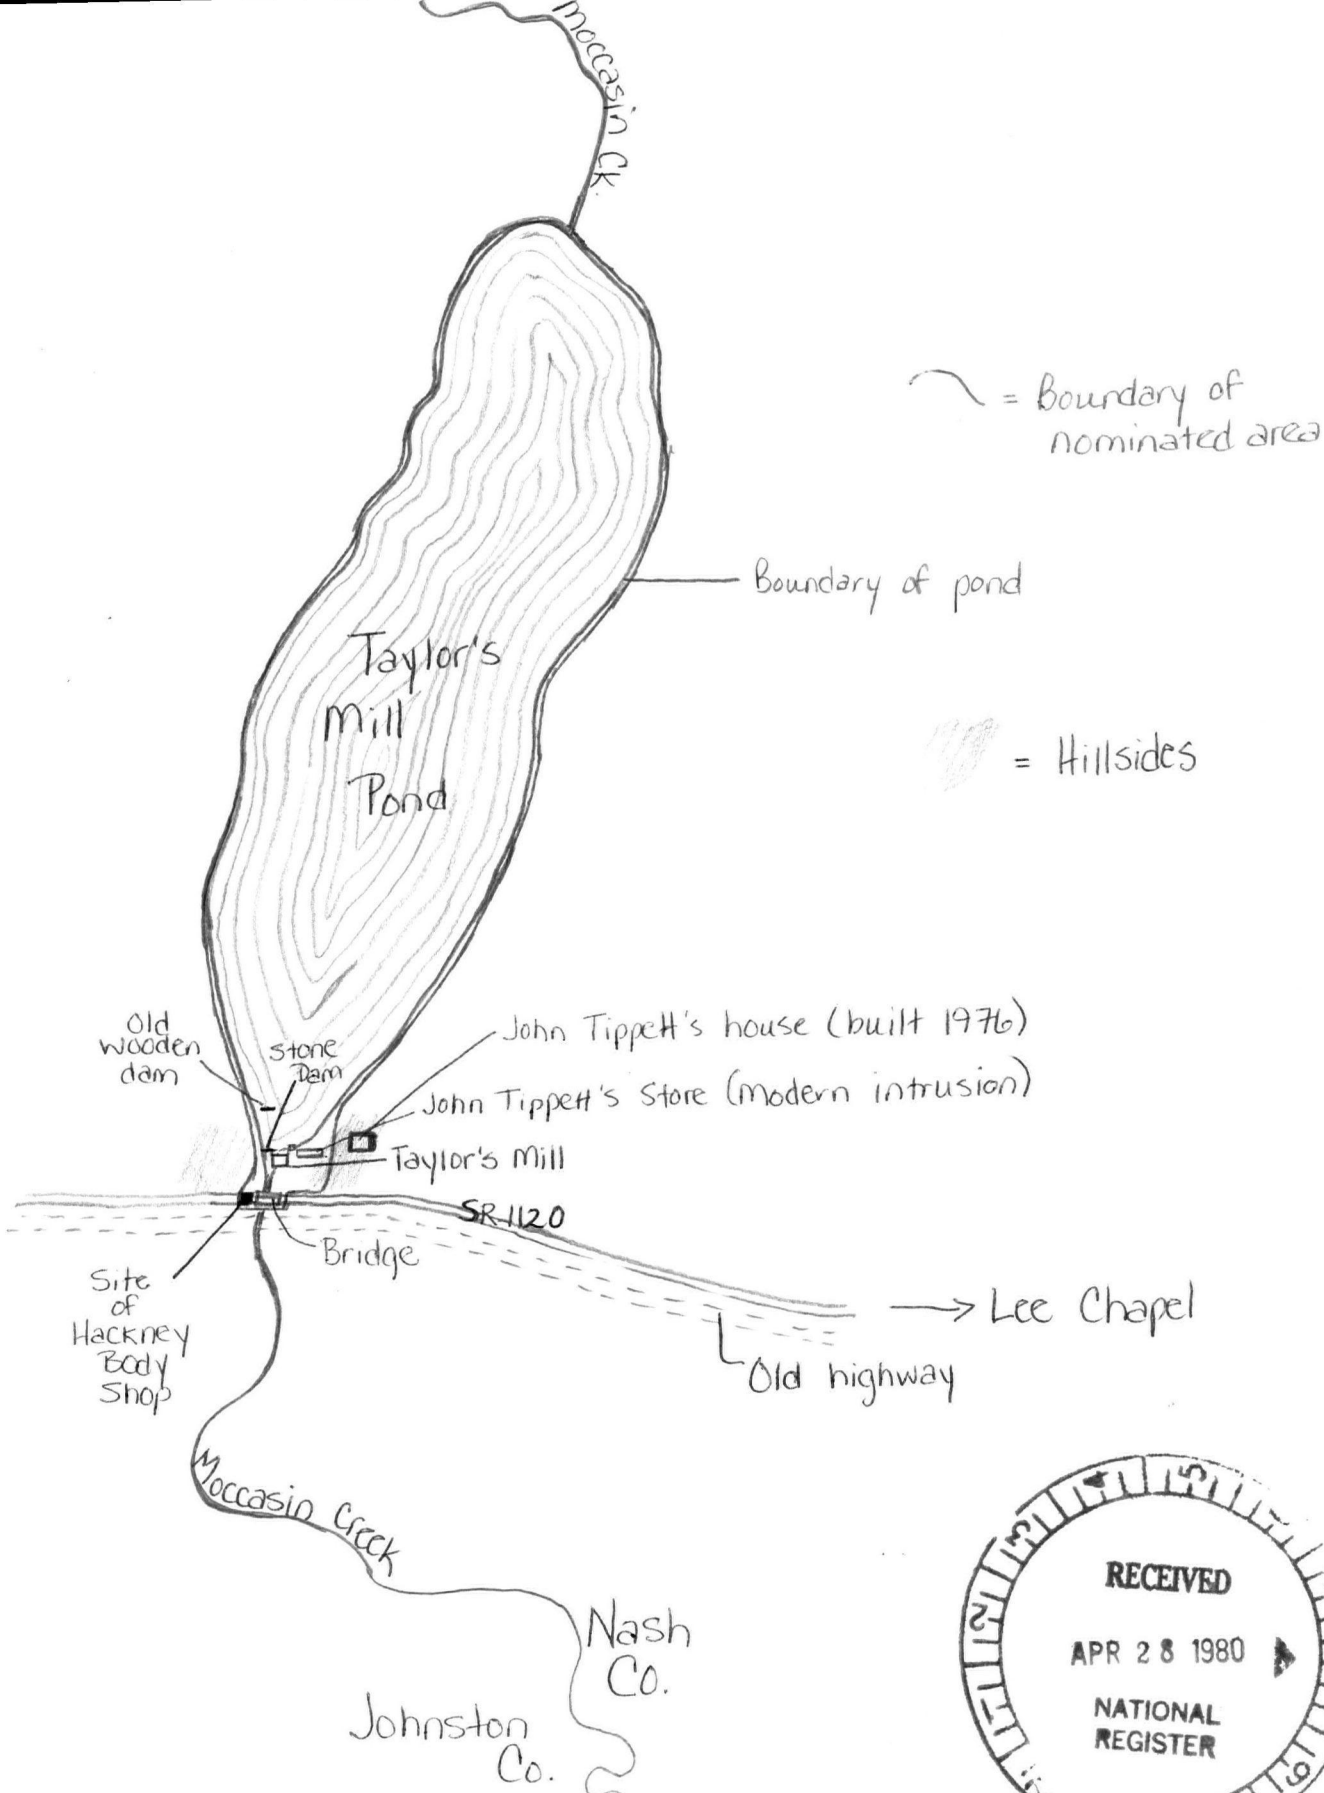 Moccasin Ck.
= Boundary of
nominated area
Boundary of pond
Taylor's
Mill
Pond
= Hillsides
Old
wooden
dam
Stone
Dam
John Tippett's house (built 1976)
John Tippett's Store (modern intrusion)
Taylor's Mill
SR 1120
Bridge
Site
of
Hackney
Body
Shop
Lee Chapel
Old highway
Moccasin Creek
Nash
Co.
Johnston
Co.
1 2 3 4 5 6
RECEIVED
APR 28 1980
NATIONAL
REGISTER